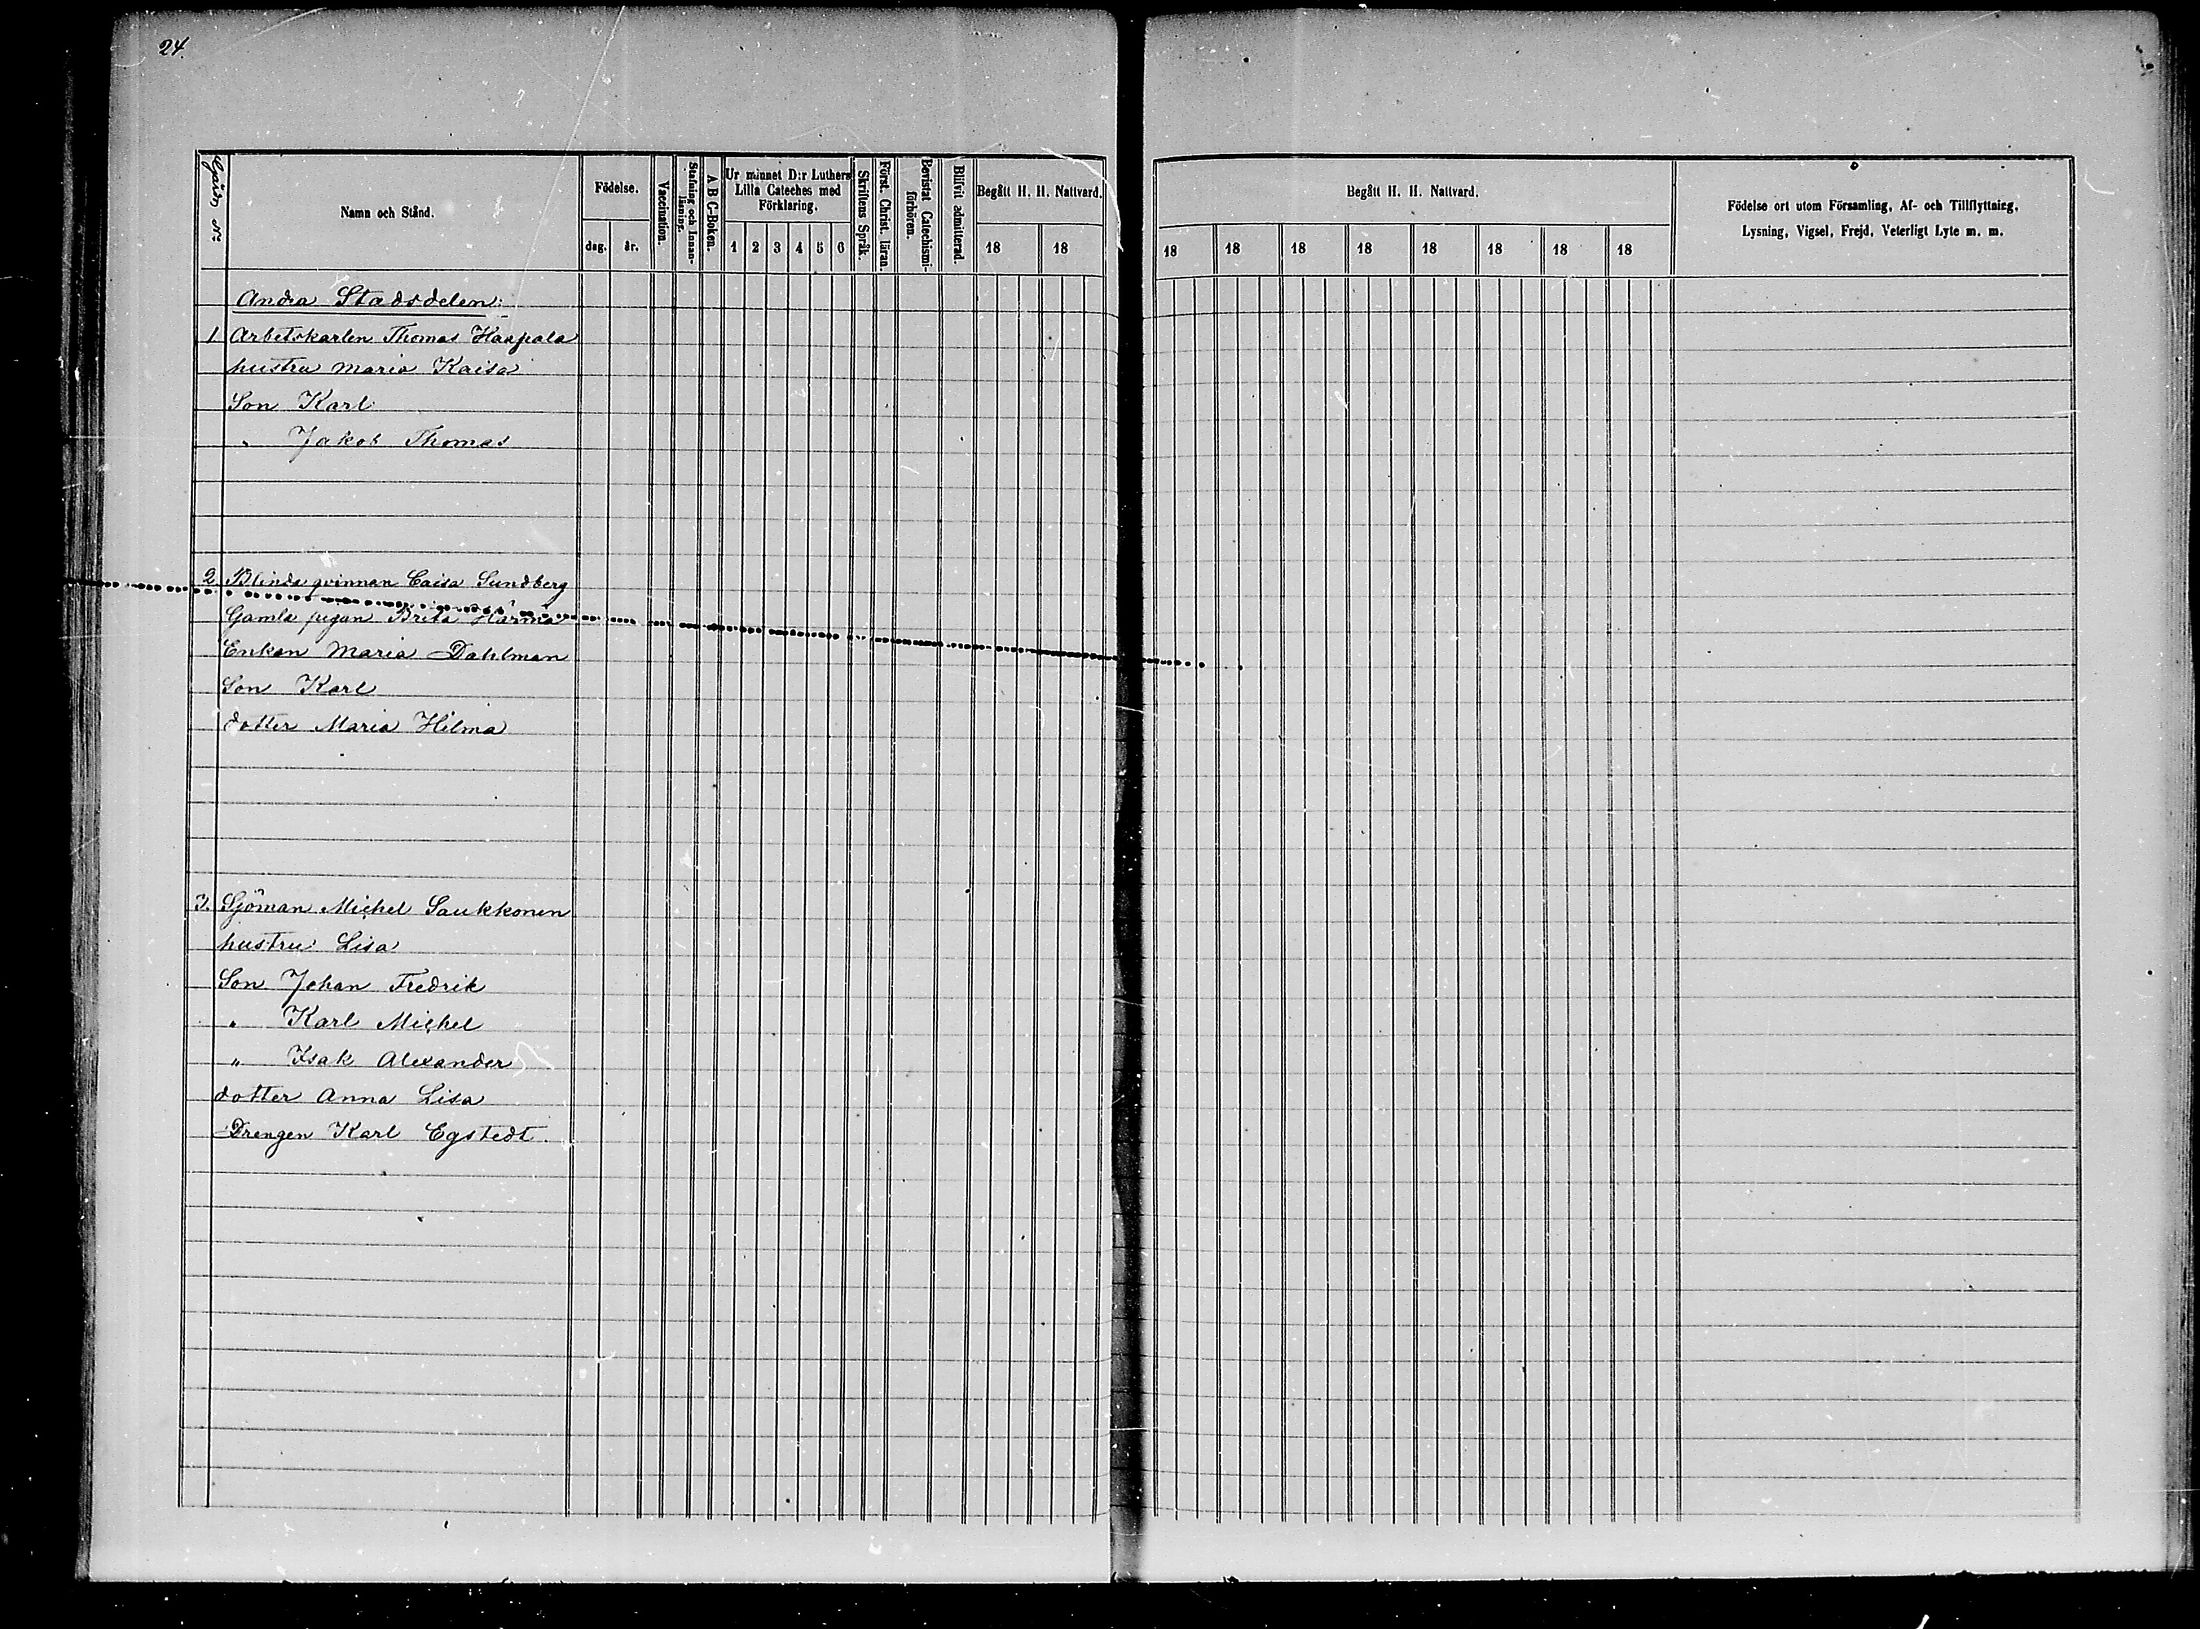 24.
Gård №
Namn och Stånd.
Födelse.
dag.
år.
Vaccination.
Stafning och Innan-
läsning.
A B C-Boken.
Ur minnet D:r Luthers
Lilla Cateches med
Förklaring.
1 2 3 4 5 6
Skriftens Språk.
Först. Christ. läran.
Bevistat Catechismi-
förhören.
Blifvit admitterad.
Begått H. H. Nattvard.
18 18
Begått H. H. Nattvard.
18 18 18 18 18 18 18 18
Födelse ort utom Församling, Af- och Tillflyttning,
Lysning, Vigsel, Frejd, Veterligt Lyte m. m.
Andra Stadsdelen.
1 Arbetskarlen Thomas Haapala
hustru Maria Kaisa
Son Karl
" Jakob Thomas
2 Blinda qvinnan Caisa Sundberg
Gamla pigan Brita Härmä
Enkan Maria Dahlman
Son Karl
dotter Maria Hilma
3. Sjöman Michel Saukkonen
hustru Lisa
Son Johan Fredrik
" Karl Michel
" Isak Alexander
dotter Anna Lisa
Drengen Karl Egstedt.